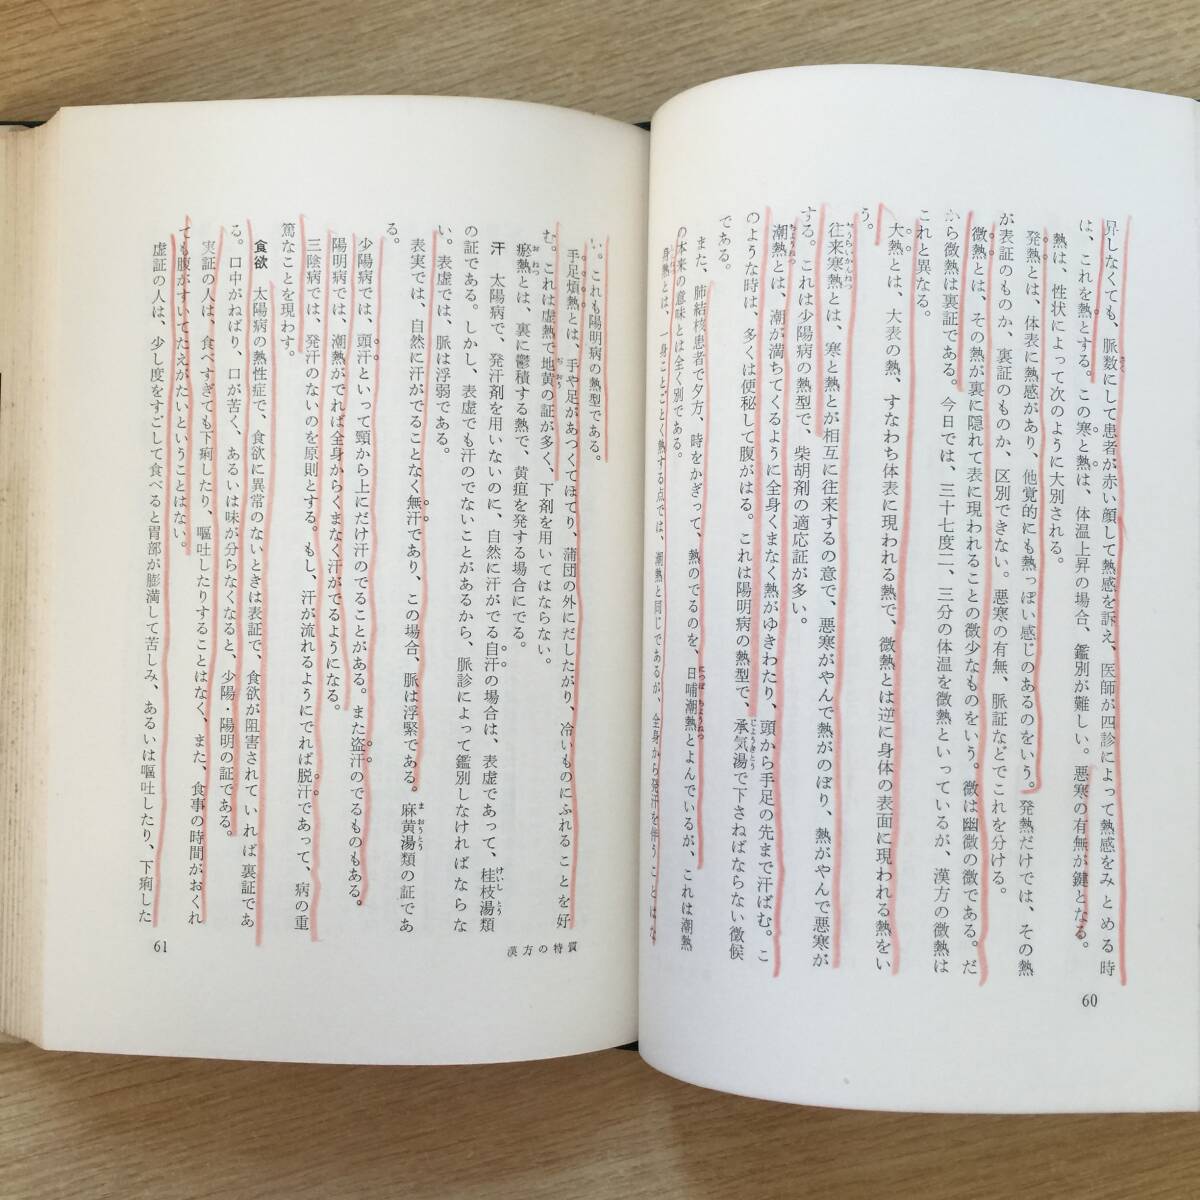 昇しなくても、脈数にして患者が赤い顔して熱感を訴え、医師が四診によって熱感をみとめる時
は、これを熱とする。この寒と熱は、体温上昇の場合、鑑別が難しい。悪寒の有無が鍵となる。
熱は、性状によって次のように大別される。
発熱とは、体表に熱感があり、他覚的にも熱っぽい感じのあるのをいう。発熱だけでは、その熱
が表証のものか、裏証のものか、区別できない。悪寒の有無、脈証などでこれを分ける。
微熱とは、その熱が裏に隠れて表に現われることの微少なものをいう。微は幽微の微である。だ
から微熱は裏証である。今日では、三十七度二、三分の体温を微熱といっているが、漢方の微熱は
これと異なる。
大熱とは、大表の熱、すなわち体表に現われる熱で、微熱とは逆に身体の表面に現われる熱をい
う。
往来寒熱とは、寒と熱とが相互に往来するの意で、悪寒がやんで熱がのぼり、熱がやんで悪寒が
する。これは少陽病の熱型で、柴胡剤の適応証が多い。
潮熱とは、潮が満ちてくるように全身くまなく熱がゆきわたり、頭から手足の先まで汗ばむ。こ
のような時は、多くは便秘して腹がはる。これは陽明病の熱型で、承気湯で下さねばならない徴候
である。
また、肺結核患者で夕方、時をかぎって、熱のでるのを、日晡潮熱とよんでいるが、これは潮熱
の本来の意味とは全く別である。
身熱とは、一身ことごとく熱する点では、潮熱と同じであるが、全身から発汗を伴うことはな
60
い。これも陽明病の熱型である。
手足煩熱とは、手や足があつくてほてり、蒲団の外にだしたがり、冷いものにふれることを好
む。これは虚熱で地黄の証が多く、下剤を用いてはならない。
瘀熱とは、裏に鬱積する熱で、黄疸を発する場合にでる。
汗　太陽病で、発汗剤を用いないのに、自然に汗がでる自汗の場合は、表虚であって、桂枝湯類
の証である。しかし、表虚でも汗のでないことがあるから、脈診によって鑑別しなければならな
い。表虚では、脈は浮弱である。
表実では、自然に汗がでることなく無汗であり、この場合、脈は浮緊である。麻黄湯類の証であ
る。
少陽病では、頭汗といって頸から上にだけ汗のでることがある。また盗汗のでるものもある。
陽明病では、潮熱がでれば全身からくまなく汗がでるようになる。
三陰病では、発汗のないのを原則とする。もし、汗が流れるようにでれば脱汗であって、病の重
篤なことを現わす。
食欲　太陽病の熱性症で、食欲に異常のないときは表証で、食欲が阻害されていれば裏証であ
る。口中がねばり、口が苦く、あるいは味が分らなくなると、少陽・陽明の証である。
実証の人は、食べすぎても下痢したり、嘔吐したりすることはなく、また、食事の時間がおくれ
ても腹がすいてたえがたいということはない。
虚証の人は、少し度をすごして食べると胃部が膨満して苦しみ、あるいは嘔吐したり、下痢した
漢方の特質
61